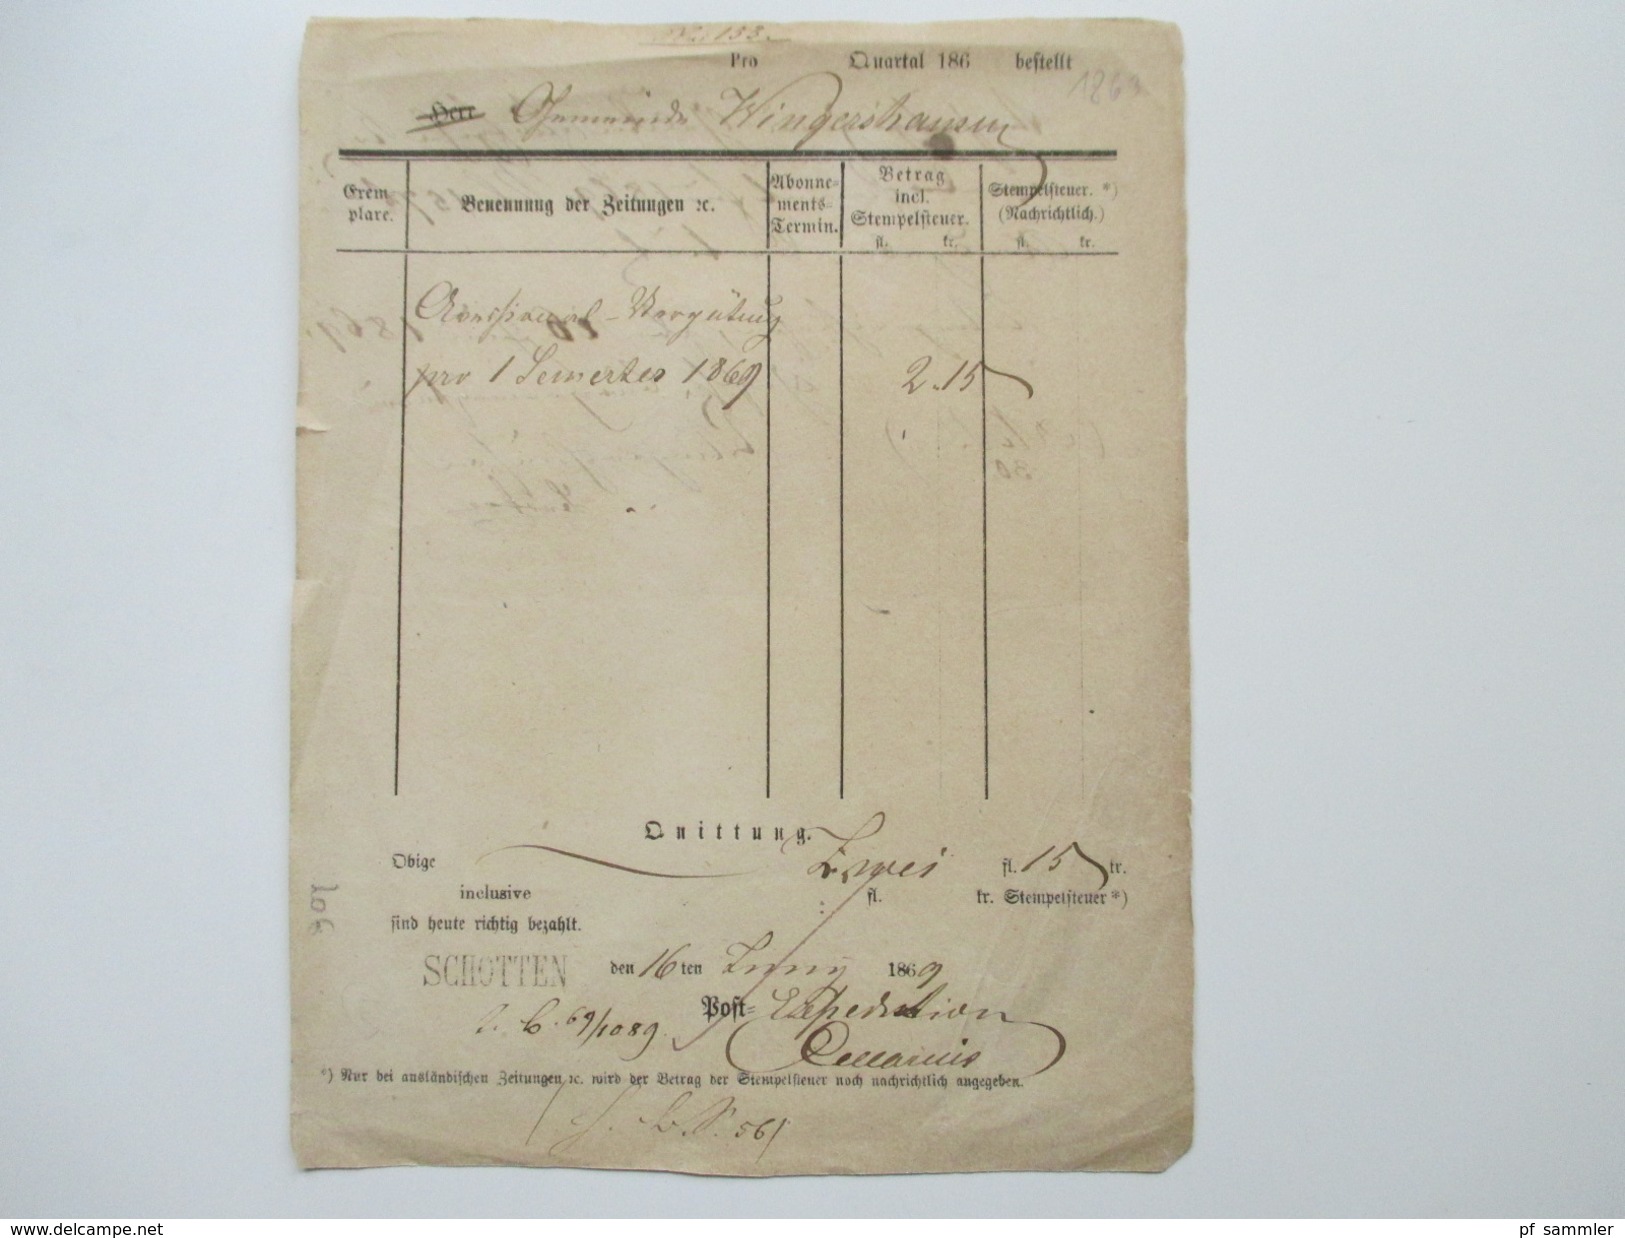 No 133.
Pro Quartal 186 bestellt
1869
Herr Gemeinde Wingershausen
Exem plare.
Benennung der Zeitungen ꝛc.
Abonne= ments= Termin.
Betrag incl. Stempelsteuer. fl. kr.
Stempelsteuer. *) (Nachrichtlich.) fl. kr.
Aversional-Vergütung
pro 1 Semester 1869 2.15
Quittung.
Obige Zwei fl. 15 kr.
inclusive fl. kr. Stempelsteuer *)
sind heute richtig bezahlt.
SCHOTTEN den 16ten Juny 1869
Post= Expedition
69/1089
Cellarius
*) Nur bei ausländischen Zeitungen ꝛc. wird der Betrag der Stempelsteuer noch nachrichtlich angegeben.
561
www.delcampe.net
pf_sammler